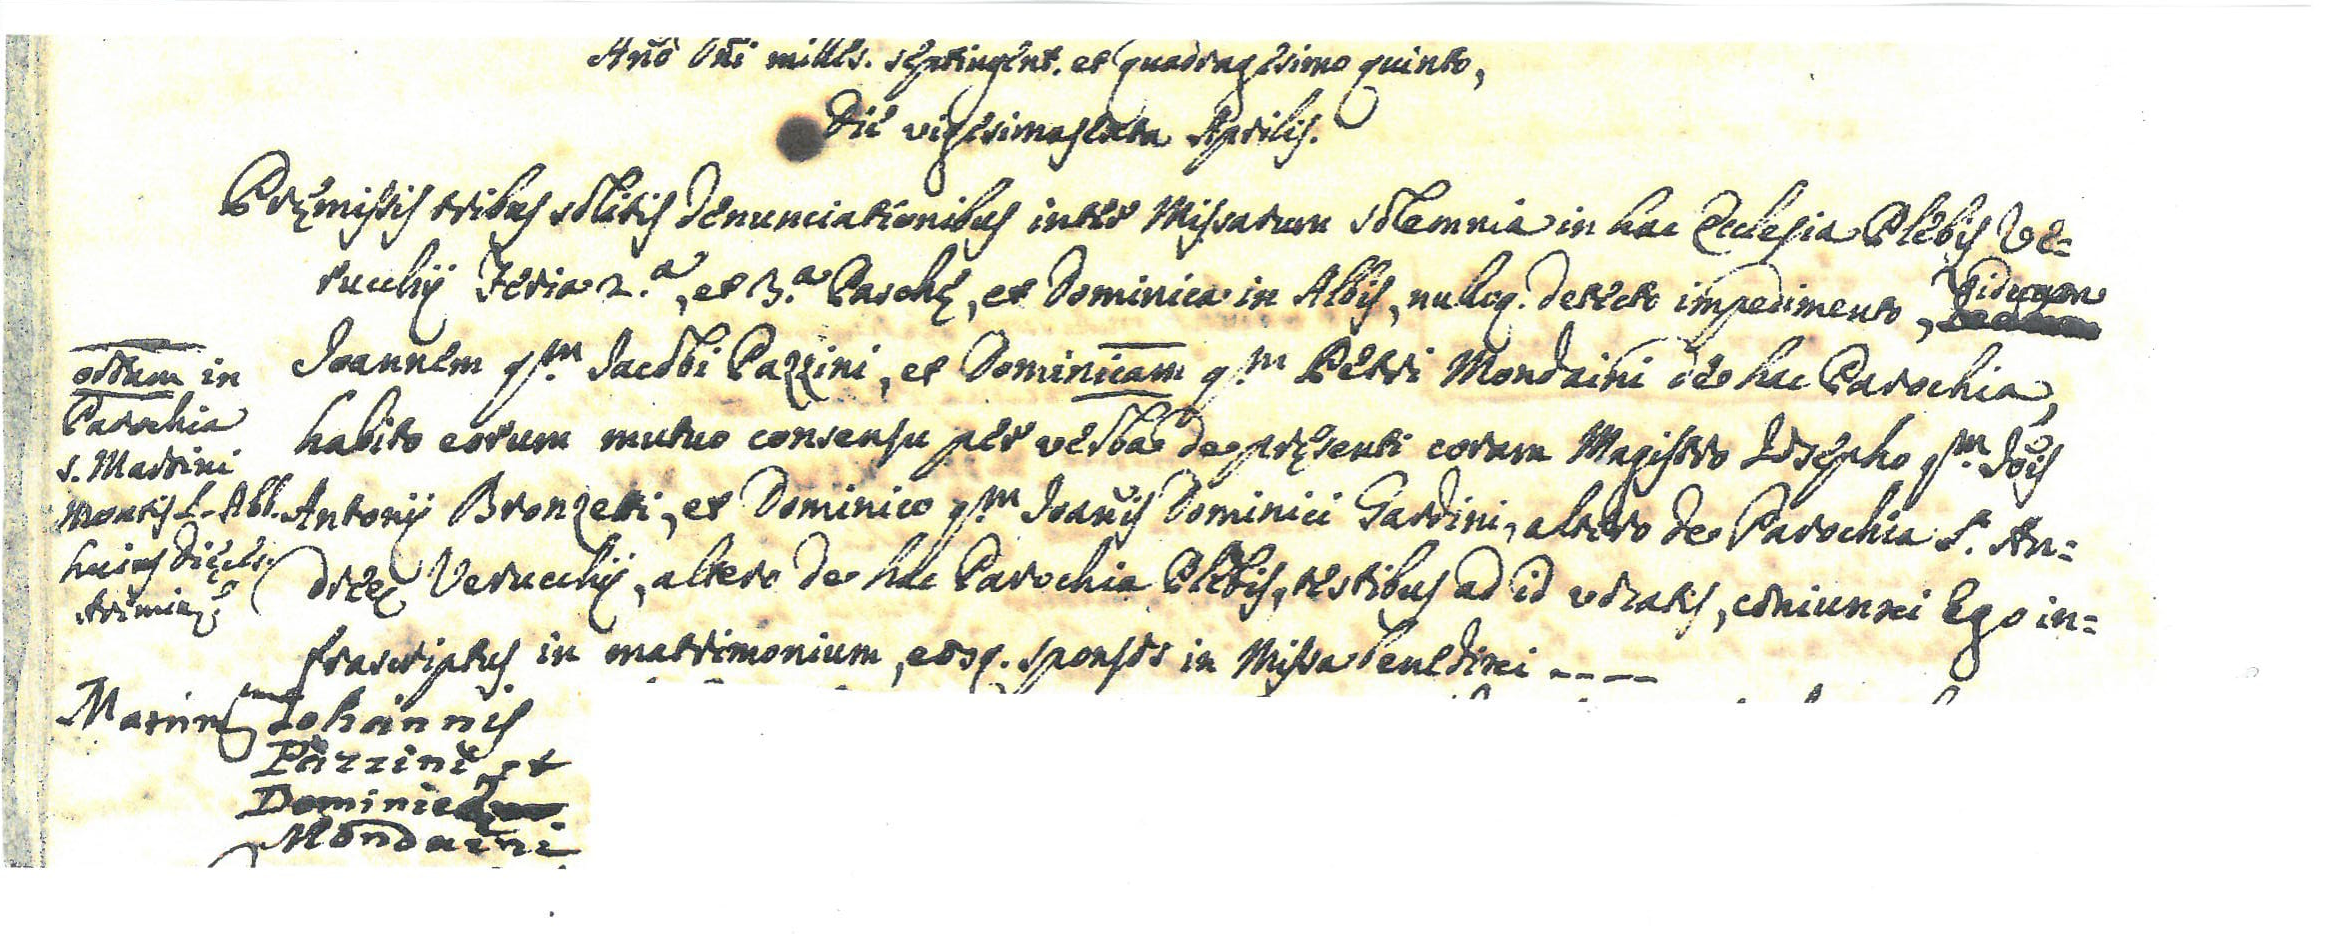 Año Dñi milles. septingent. et quadragesimo quinto,
Die vigesimasexta Aprilis.
Pręmissis tribus solitis denunciationibus inter Missarum solemnia in hac Ecclesia Plebis Ve=
rucchij Feria 2.ª, et 3.ª Paschę, et Dominica in Albis, nulloq. detecto impedimento,
Joannem qm. Jacobi Pazzini, et Dominicam qm. Petri Mondaini de hac Parochia,
habito eorum mutuo consensu per verba de pręsenti coram Magistro Josepho qm. Jois
Antonij Bronzetti, et Dominico qm. Joañis Dominici Gardini, altero de Parochia S. An=
dreę Verucchij, altero de hac Parochia Plebis, testibus ad id vocatis, coniunxi Ego in=
frascriptus in matrimonium, eosq. sponsos in Missa benedixi ----
ortam in
Parochia
S. Martini
Montis L. Abb.
huius Dięces.
Arimin.
Matrim Johannis
Pazzini et
Dominicę
Mondaini